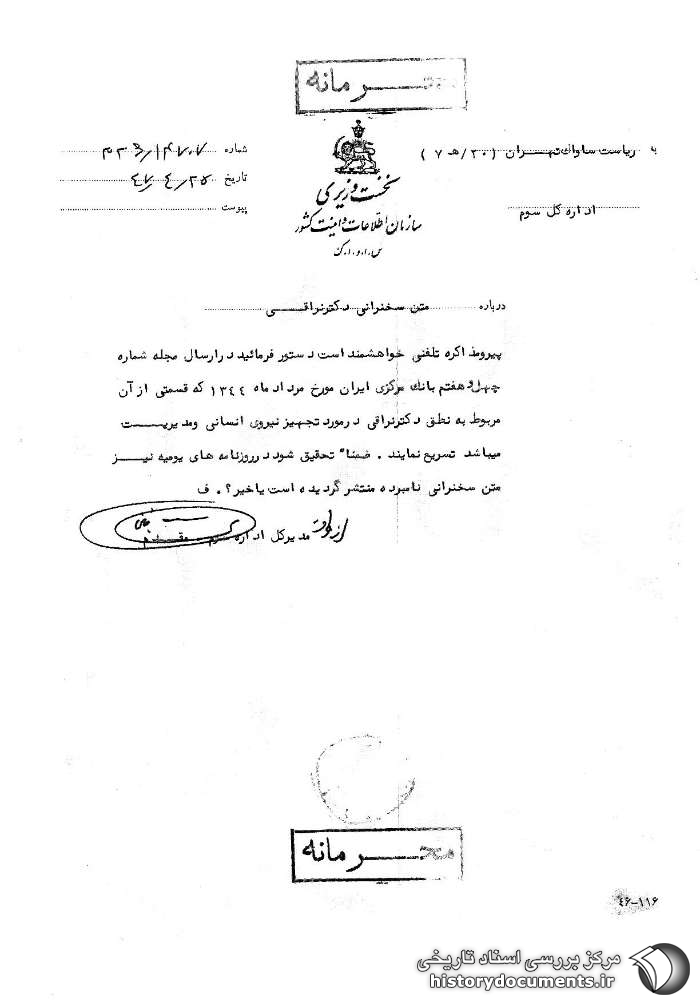 محرمانه
به ریاست ساواک تهران (۲۰/هـ ۷)
اداره کل سوم
نخست وزیری
سازمان اطلاعات و امنیت کشور
س.ا.و.ا.ک
شماره
تاریخ ۴۷/۴/۲۵
پیوست
درباره متن سخنرانی دکترنراقی
پیرومذاکره تلفنی خواهشمند است دستور فرمائید درارسال مجله شماره
چهل و هفتم بانک مرکزی ایران مورخ مرداد ماه ۱۳۴۴ که قسمتی از آن
مربوط به نطق دکترنراقی درمورد تجهیز نیروی انسانی ومدیریت
میباشد تسریع نمایند. ضمناً تحقیق شود درروزنامه های یومیه نیز
متن سخنرانی نامبرده منتشر گردیده است یاخیر؟. ف
مدیرکل اداره سوم مقدم
از طرف
محرمانه
۴۶-۱۱۶
مرکز بررسی اسناد تاریخی
historydocuments.ir